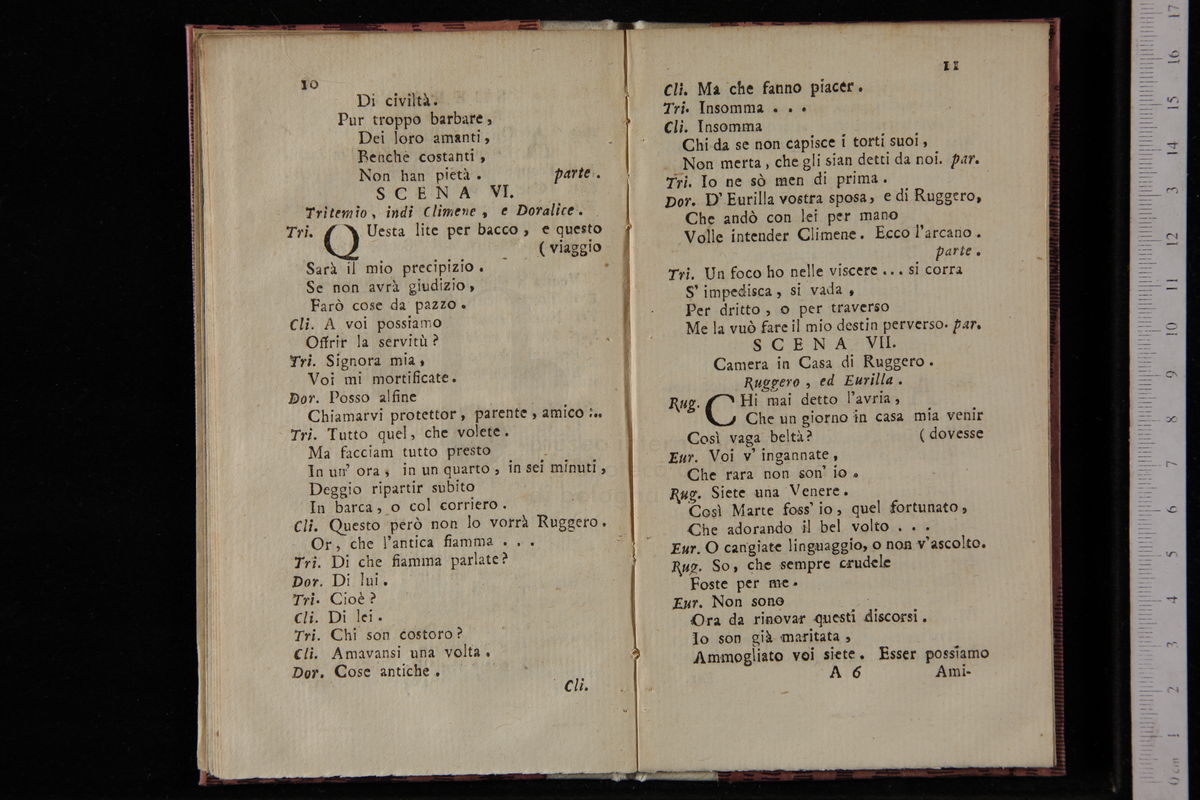 10
Di civiltà.
Pur troppo barbare,
Dei loro amanti,
Benche costanti,
Non han pietà. parte.
SCENA VI.
Tritemio, indi Climene, e Doralice.
Tri. QUesta lite per bacco, e questo
(viaggio
Sarà il mio precipizio.
Se non avrà giudizio,
Farò cose da pazzo.
Cli. A voi possiamo
Offrir la servitù?
Tri. Signora mia,
Voi mi mortificate.
Dor. Posso alfine
Chiamarvi protettor, parente, amico :..
Tri. Tutto quel, che volete.
Ma facciam tutto presto
In un' ora, in un quarto, in sei minuti,
Deggio ripartir subito
In barca, o col corriero.
Cli. Questo però non lo vorrà Ruggero.
Or, che l'antica fiamma . . .
Tri. Di che fiamma parlate?
Dor. Di lui.
Tri. Cioè?
Cli. Di lei.
Tri. Chi son costoro?
Cli. Amavansi una volta.
Dor. Cose antiche.
Cli.
11
Cli. Ma che fanno piacer.
Tri. Insomma . . .
Cli. Insomma
Chi da se non capisce i torti suoi,
Non merta, che gli sian detti da noi. par.
Tri. Io ne sò men di prima.
Dor. D'Eurilla vostra sposa, e di Ruggero,
Che andò con lei per mano
Volle intender Climene. Ecco l'arcano.
parte.
Tri. Un foco ho nelle viscere ... si corra
S' impedisca, si vada,
Per dritto, o per traverso
Me la vuò fare il mio destin perverso. par.
SCENA VII.
Camera in Casa di Ruggero.
Ruggero, ed Eurilla.
Rug. CHi mai detto l'avria,
Che un giorno in casa mia venir
Così vaga beltà? (dovesse
Eur. Voi v' ingannate,
Che rara non son' io.
Rug. Siete una Venere.
Così Marte foss' io, quel fortunato,
Che adorando il bel volto . . .
Eur. O cangiate linguaggio, o non v'ascolto.
Rug. So, che sempre crudele
Foste per me.
Eur. Non sono
Ora da rinovar questi discorsi.
Io son già maritata,
Ammogliato voi siete. Esser possiamo
A 6 Ami-
0 cm 1 2 3 4 5 6 7 8 9 10 11 12 13 14 15 16 17